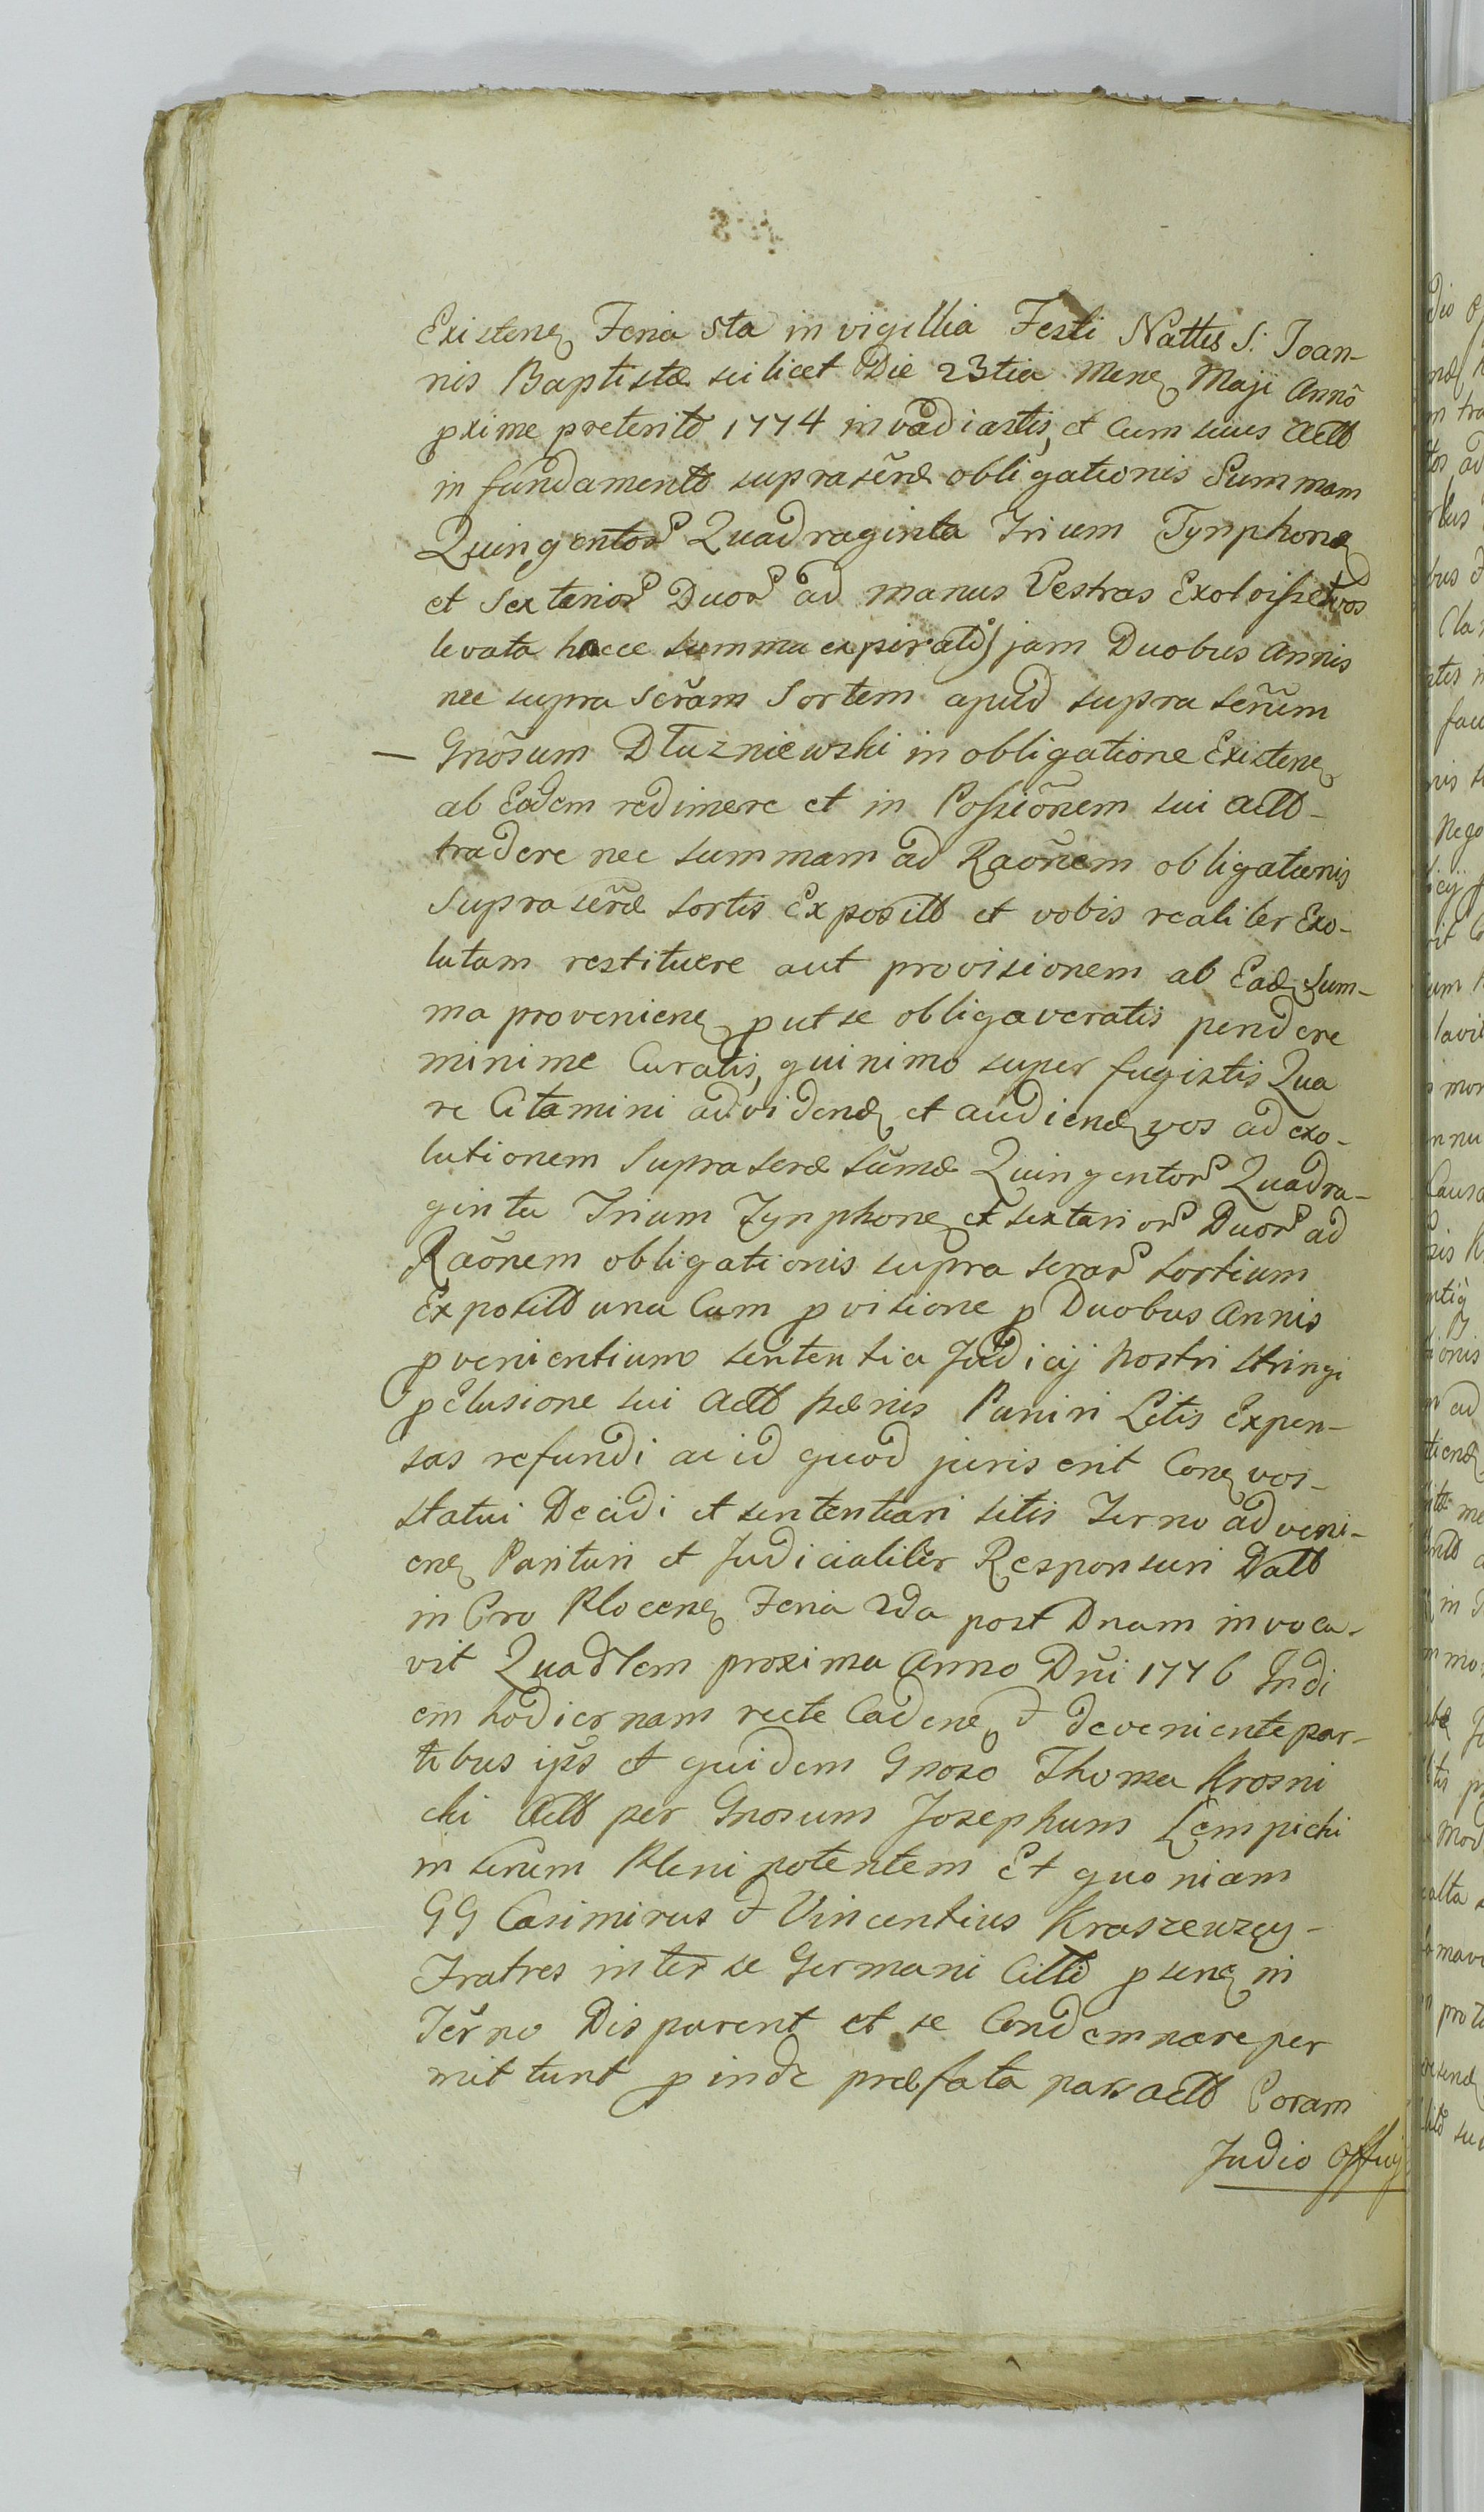 Existen Feria 5ta in vigillia Festi Nattis S. Joan-
nis Baptistæ scilicet Die 23tia Men Maji Annõ
pxime preterito 1774 invadiastis, et cum suus Actt
in fundamento suprascr̃æ obligationis Summam
Quingentor Quadraginta Trium Tynphon
et Sextarior Duor ad manus Vestras Exolvisset vos
levata hacce summa expirat jam Duobus Annis
nec supra Scr̃am Sortem apud supra Scr̃um
— Gnõsum Dłuzniewski in obligatione Existen
ab Eadem redimere et in Possiõnem sui Actt-
tradere nec summam ad Raõnem obligationis
Suprascr̃æ sortis Expositt et vobis realiter Exo-
lutam restituere aut provisionem ab Ead Sum-
ma provenien put se obligaveratis pendere
minime Curatis, quinimo super fugistis Qua
re Citamini ad viden et audien vos ad exo-
lutionem Supra scræ sũmæ Quingentor Quadra-
ginta Trium Tynphon et sextarior Duor ad
Raõnem obligationis supra scrar sortium
Expositt una Cum pvisione p Duobus Annis
pvenientium sententia Judicij Nostri stringi
pclusione sui Actt pænis Puniri Litis Expen-
sas refundi ac id quod juris erit Con vos-
statui Decidi et sententiari sitis Terno adveni-
en Parituri et Judicialiter Responsuri Datt
in Cro Plocen Feria 2da post Dnam invoca-
vit Quadlem proxima Anno Dñi 1776 In di
em hodiernam recte Caden & deveniente par-
tibus ip̃s et quidem Gnoso Thoma Krosni
cki Actt per Gnosum Josephum Łempicki
m scrum Plenipotentem Et quoniam
GG Casimirus & Vincentius Kraszewscy-
Fratres inter se Germani Citti psen in
Ter̃no Disparent et se Condemnare per
mittunt pinde præfata pars Actt Coram
Judio Offuij